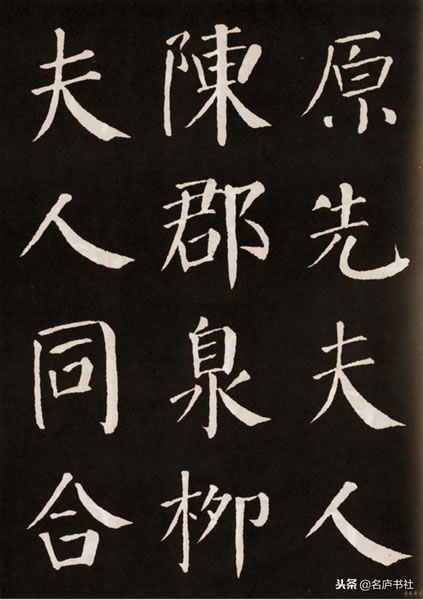 原先夫人
陳郡泉柳
夫人同合
头条@名庐书社